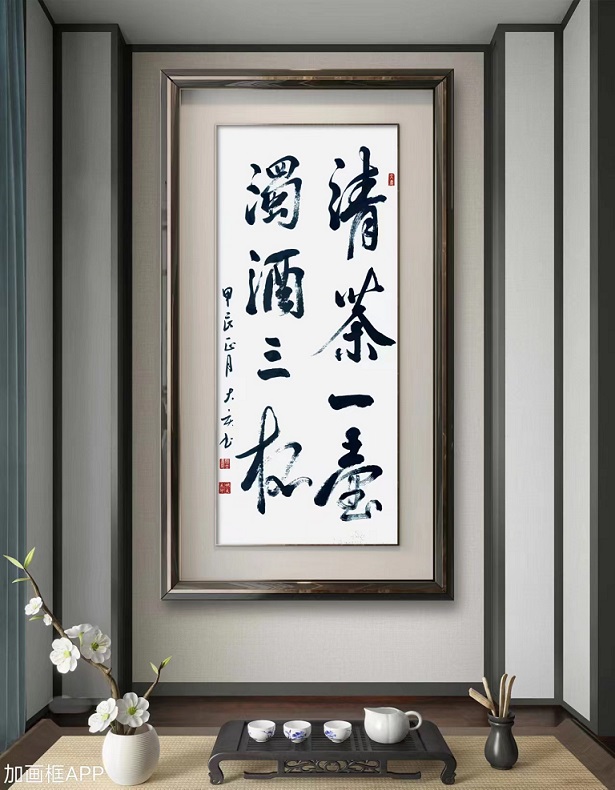 清茶一壶
濁酒三杯
甲辰正月大玄书
加画框APP